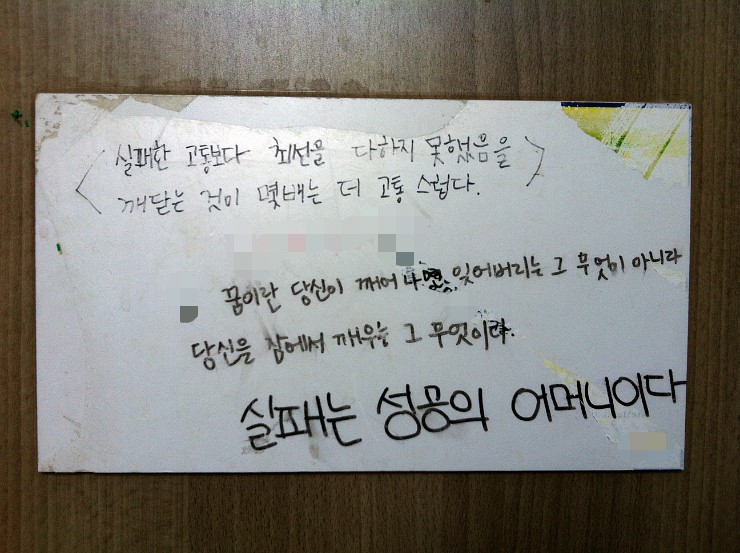 <실패한 고통보다 최선을 다하지 못했음을>
깨닫는 것이 몇배는 더 고통 스럽다.
꿈이란 당신이 깨어 나면, 잊어버리는 그 무엇이 아니라
당신을 잠에서 깨우는 그 무엇이라.
실패는 성공의 어머니이다